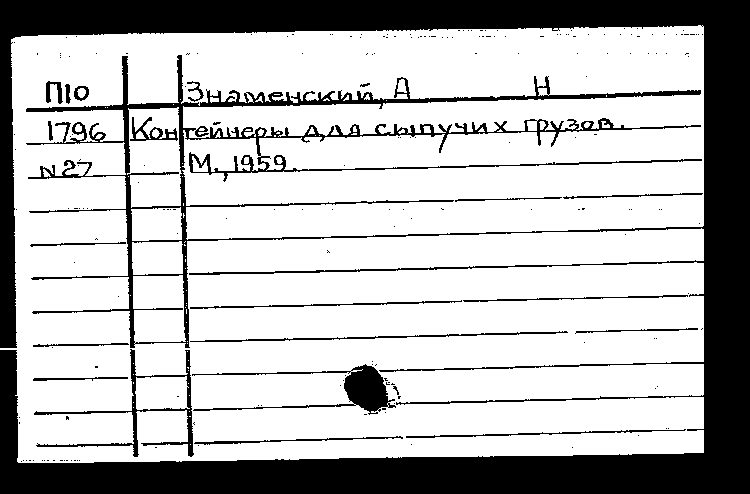 П10 Знаменский, А Н
1796 Контейнеры для сыпучих грузов.
N27 М., 1959.